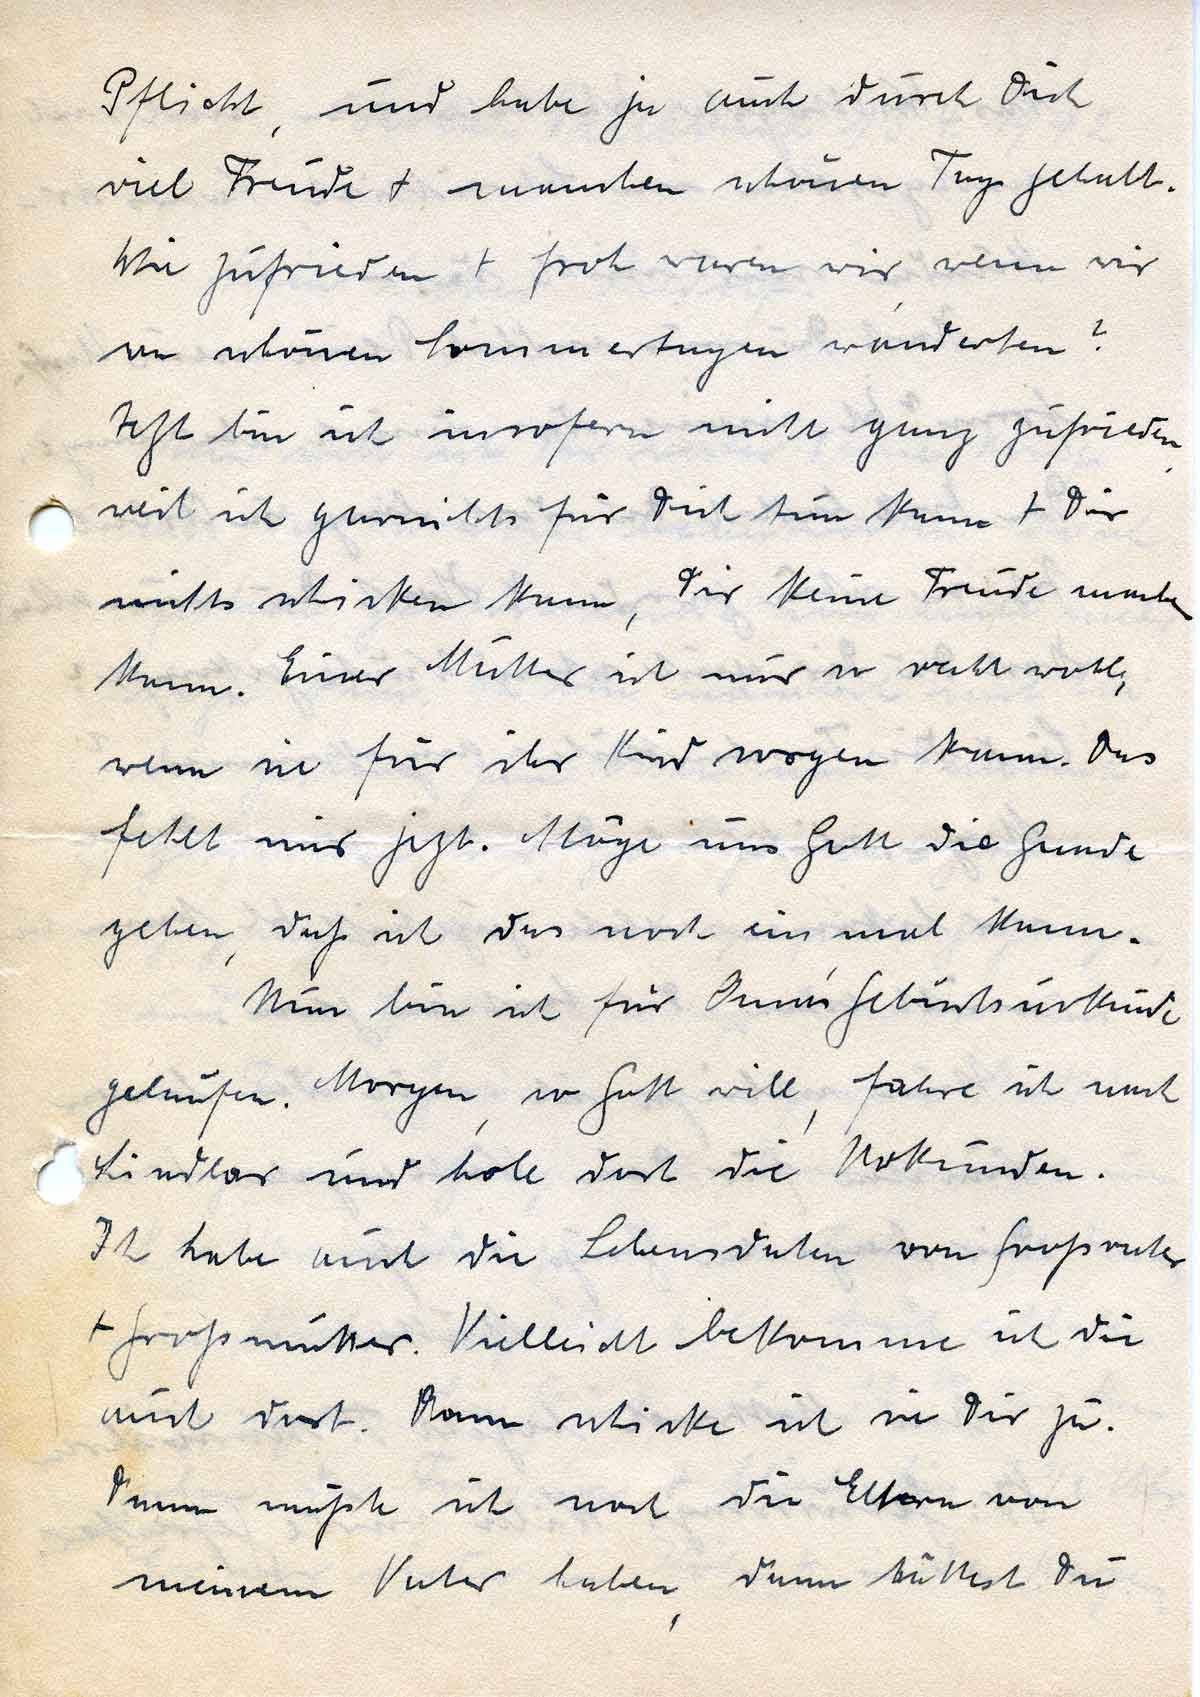 Pflicht, und habe ja auch durch Dich
viel Freude + manchen schönen Tag gehabt.
Wie zufrieden + froh waren wir, wenn wir
an schönen Sommertagen wanderten?
Jetzt bin ich insofern nicht ganz zufrieden,
weil ich garnichts für Dich tun kann + Dir
nichts schicken kann, Dir keine Freude machen
kann. Einer Mutter ist nur so recht wohl,
wenn sie für ihr Kind sorgen kann. Das
fehlt mir jezt. Möge uns Gott die Gnade
geben, daß ich das noch einmal kann.
Nun bin ich für Geburtsurkunde
gelaufen. Morgen, so Gott will, fahre ich nach
Lindlar und hole dort die Urkunden.
Ich habe auch die Lebensdaten von Großvater
+ Großmutter. Vielleicht bekomme ich die
auch dort. Dann schicke ich sie Dir zu.
Dann müßte ich noch die Eltern von
meinem Vater haben, dann hättest Du